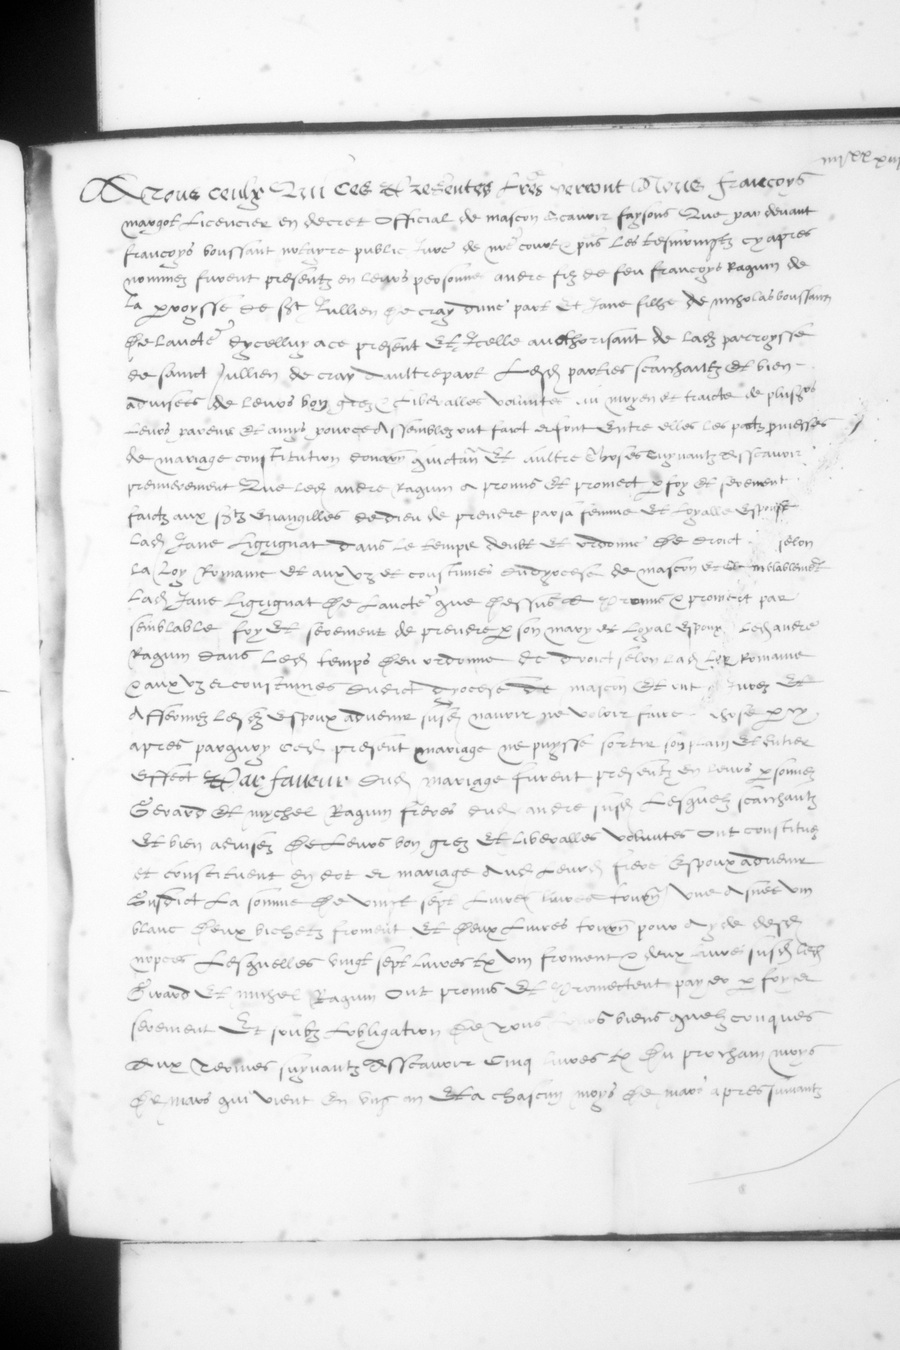 A Tous ceulx Qui Ces presentes lres verront Nous francoys
margot Licencier en decret official de mascon scavoir faysons Que par devant
francoys boussant notayre public Jure de nre court & pns les tesmoingtz cy apres
nommez furent presentz en leurs personnes andre filz de feu francoys Ragum de
La parroysse de st Jullien de cray dune part Et Jane fillie de nicholas boussant
De laucte dycelluy a ce present Et Icelle aucthorisant de lad parroysse
de sainct Jullien de cray daultre part Lesd parties scaichantz Et bien
advisees de leurs bon grez & liberalles voluntes au moyen et traicte de plusrs
Leurs parens Et amys pource assemblez ont faict et font entre elles les pactz promesses
de mariage constitution quictan Et aultre choses suyvantz Asscavoir
premierement Que led andre Ragum a promis Et promect p foy et serement
faictz aux stz Evangilles de dieu de prendre par sa femme Et loyalle espouse
Lad Jane Ligrignat dans le temps deubt Et ordonne de droict selon
La loy Romaine Et aux uz et coustumes du dyocese de mascon et semblablement
Lad Jane Ligrignat De laucte que dessus a promis & promect par
semblable foy Et serement de prendre p son mary et loyal espoux led andre
Ragum dans led temps deu ordonne de droict selon lad loy Romaine
& aux uz et coustumes dudict dyocese de mascon Et ont jurez Et
Affermez lesd espoux advenir navoir ne voloir faire chose p cy
apres parquoy ced present mariage ne puysse sortir son plain Et entier
effect Par faveur dud mariage furent presentz en leurs personnes
Gerard Et mychel Ragum freres dud andre susd Lesquelz scaichantz
Et bien advisez De leurs bon grez Et liberalles voluntes ont constitue
et constituent en dot et mariage Aud leurd frere espoux advenir
susdict La somme De vingt sept livres tourn Une Asnee vin
blanc deux bichetz froment Et deux livres tourn pour ayde desd
nopces Lesquelles vingt sept livres tz vin froment & deux livres susd lesd
Girard Et michel Ragum ont promis Et promectent payer p foy et
serement Et soubz lobligation De tous biens quelzconques
Aux termes suyvantz Asscavoir Cinq livres tz du prochain moys
De mars qui vient en ung an Et a chascun moys de mars apres suivantz